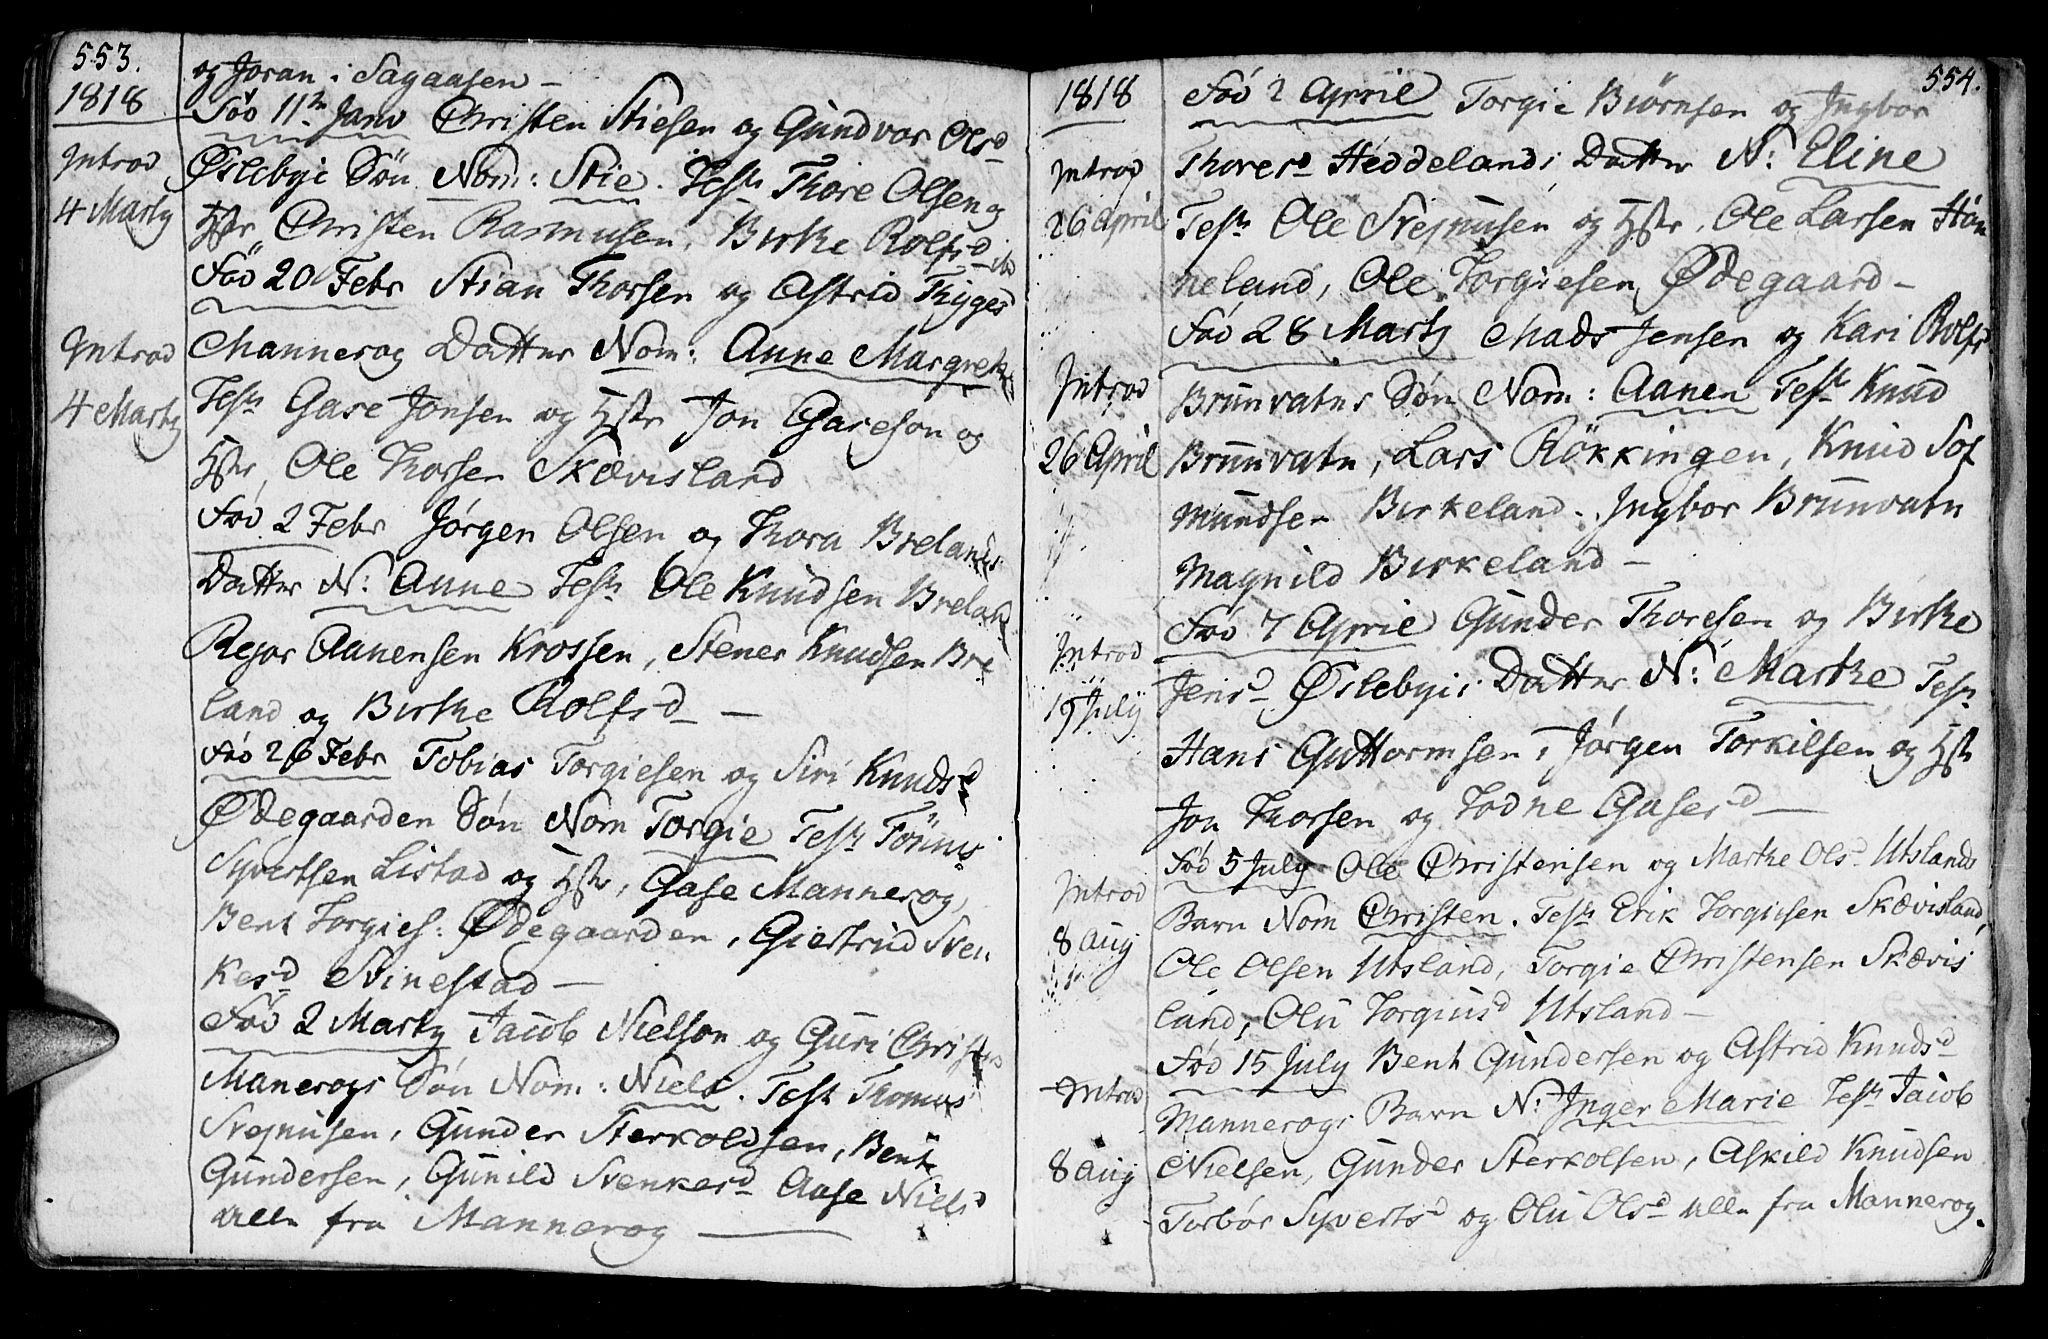 553.
1818
og Joran i Sagaasen –
Fød 11te Janv Christen Stiesen og Gundvor Olsd
Introd
Øslebyie Søn Nom: Stie. Test Thore Olsen og
4 Marty
Hstr Christen Rasmusen, Birthe Rolfsd ibd
Fød 20 Febr Stian Thorsen og Astrid Thygesd
Introd
Mannerog Datter Nom: Anne Margrete
4 Marty
Test Gase Jonsen og Hstr Jon Gaseson og
Hstr, Ole Thorsen Skævisland
Fød 2 Febr Jørgen Olsen og Thora Brelands
Datter N: Anne Test Ole Knudsen Breland
Rejar Aanensen Krossen, Stener Knudsen Bre
land og Birthe Rolfsd –
Fød 26 Febr Tobias Torgiesen og Siri Knudsd
Ødegaarden Søn Nom Torgie Test Tønnes
Syvertsen Listad og Hstr, Gase Mannerog,
Bent Torgies: Ødegaarden, Giertrud Sven
kesd Svinestad –
Fød 2 Marty Jacob Nielson og Guri Christens
Manerogs Søn Nom: Niels. Test Thomas
Svejnusen, Gunder Sterkoldsen, Bent
Gundersen, Gunild Svenkesd Aase Nielsd
alle fra Mannerog –
554.
1818
Fød 2 April Torgie Biørnsen og Ingbor
Introd
Thoresd Heddelands Datter N: Eline
26 April
Test Ole Svejnusen og Hstr, Ole Larsen Høn
neland, Ole Torgiesen Ødegaard –
Fød 28 Marty Mads Jensen og Kari Rolfs
Introd
Brunvatns Søn Nom: Aanen Test Knud
26 April
Brunvatn, Lars Røkkingen, Knud Sof
mundsen Birkeland. Ingbor Brunvatn
Magnild Birkeland –
Fød 7 April Gunder Thoresen og Birthe
Introd
Jensd Øslebyis Datter N: Marthe Test
19 July
Hans Guttormsen, Jørgen Torkilsen og Hstr
Jon Thorsen og Todne Gasesd –
Fød 5 July Ole Christensen og Marthe Olsd Utslands
Introd
Barn Nom Christen. Test Erik Torgiesen Skævisland,
8 Aug
Ole Olsen Utsland, Torgie Christensen Skævis
land, Olu Torgiusd Utsland –
Fød 15 July Bent Gundersen og Astrid Knudsd
Introd
Mannerogs Barn N: Inger Marie Test Jacob
8 Aug
Nielsen, Gunder Sterkolsen, Askild Knudsen
Torbør Syvertsd og Olu Olsd alle fra Mannerog.